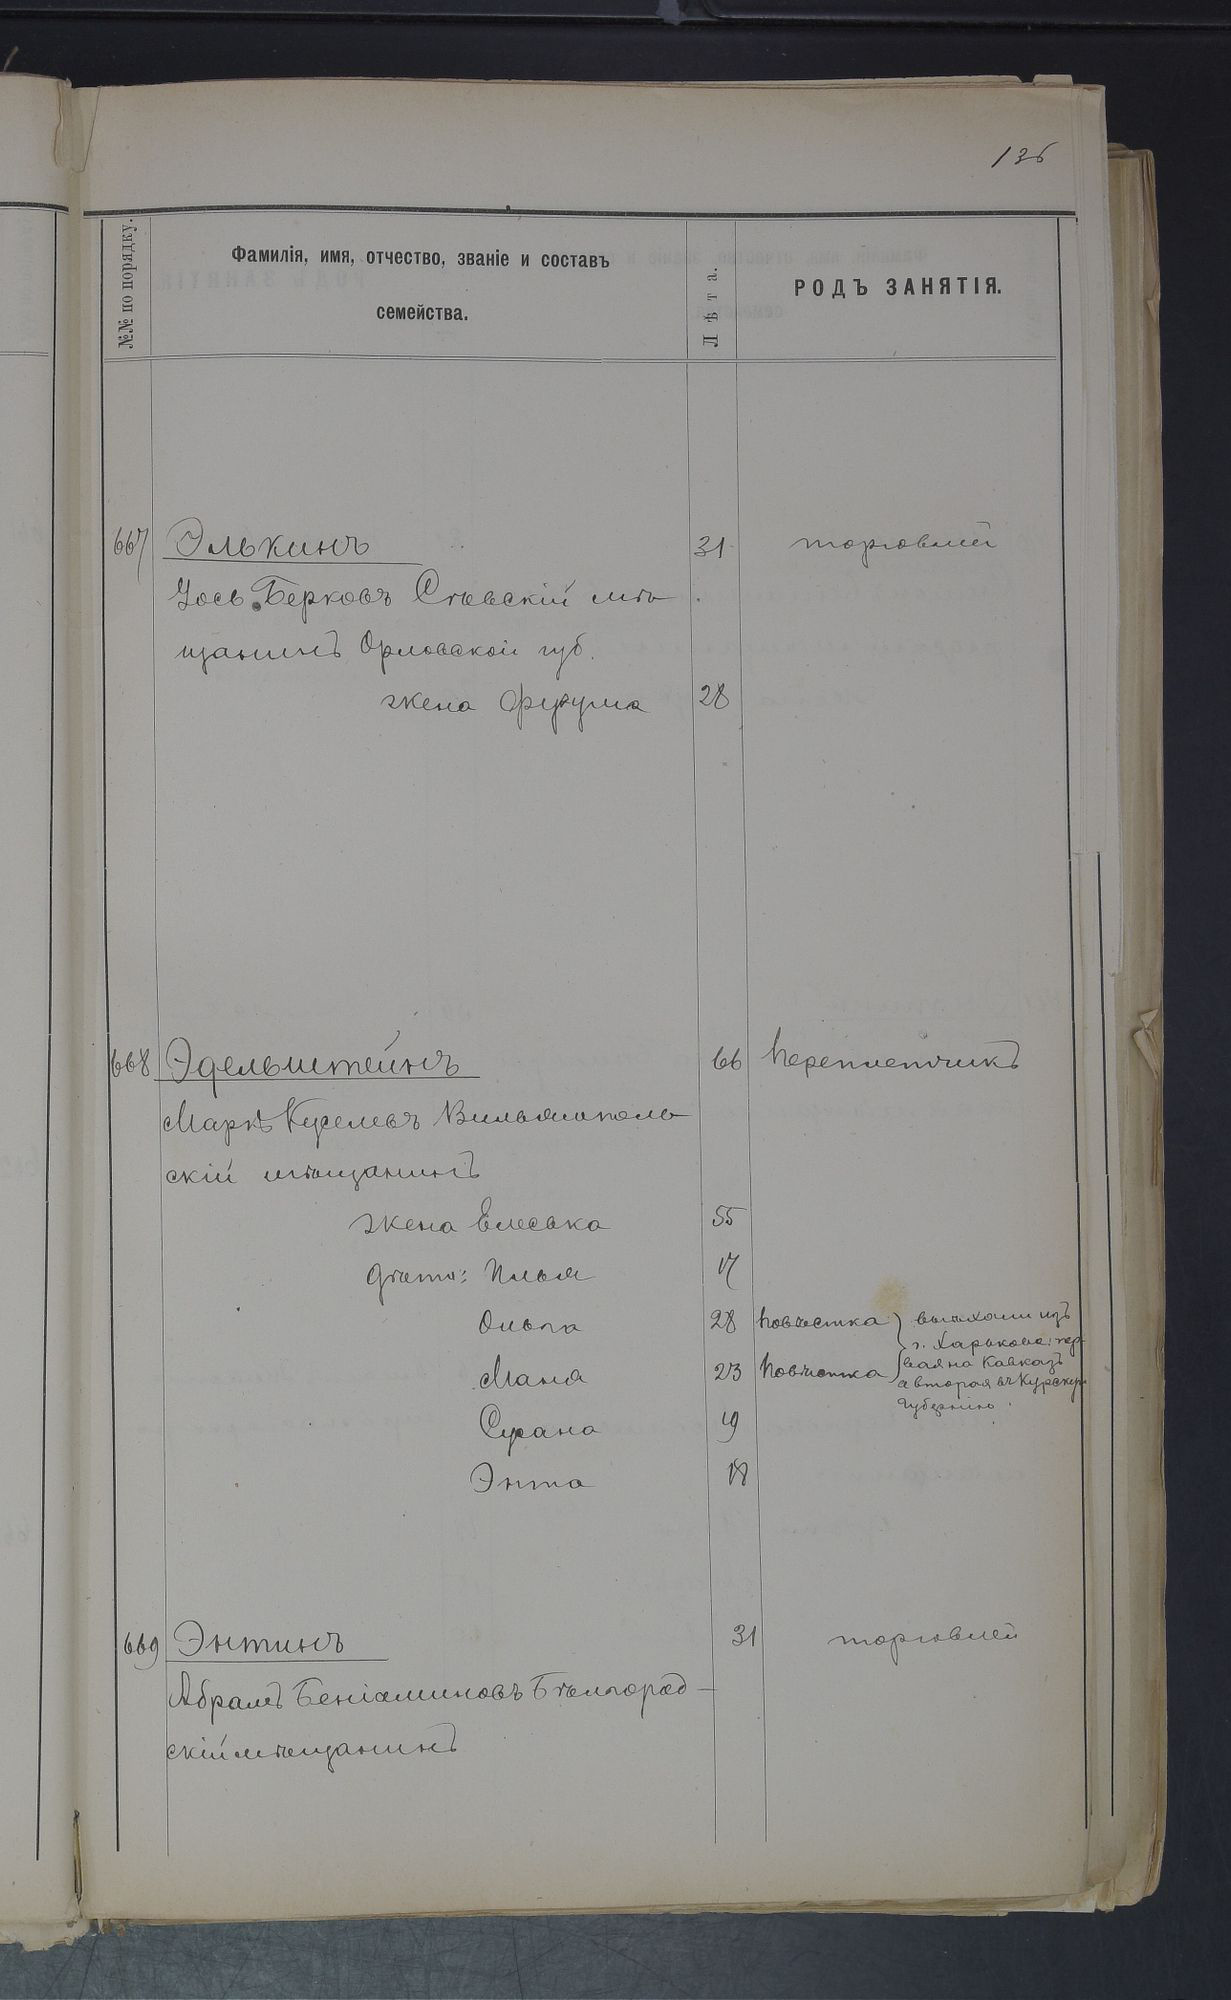 136
№№ по порядку.
Фамилія, имя, отчество, званіе и составъ
семейства.
Лѣта.
РОДЪ ЗАНЯТІЯ.
667 Элькинъ 31 торговлей
Іось Берковъ Сѣвскій мѣ
щанинъ Орловской губ.
жена Фрума 28
668 Эдельштейнъ 66 переплетчикъ
Маркъ Куселевъ Вильямполь
скій мѣщанинъ
жена Елеська 55
дѣти: Илья 17
Ольга 28 повѣстка } выѣхали изъ
г. Харькова: пер-
Маня 23 повѣстка вая на Кавказъ
а вторая въ Курскую
губернію.
Сурана 19
Энта 18
669 Энтинъ 31 торговлей
Абрамъ Беніаминовъ Бѣлгород-
скій мѣщанинъ